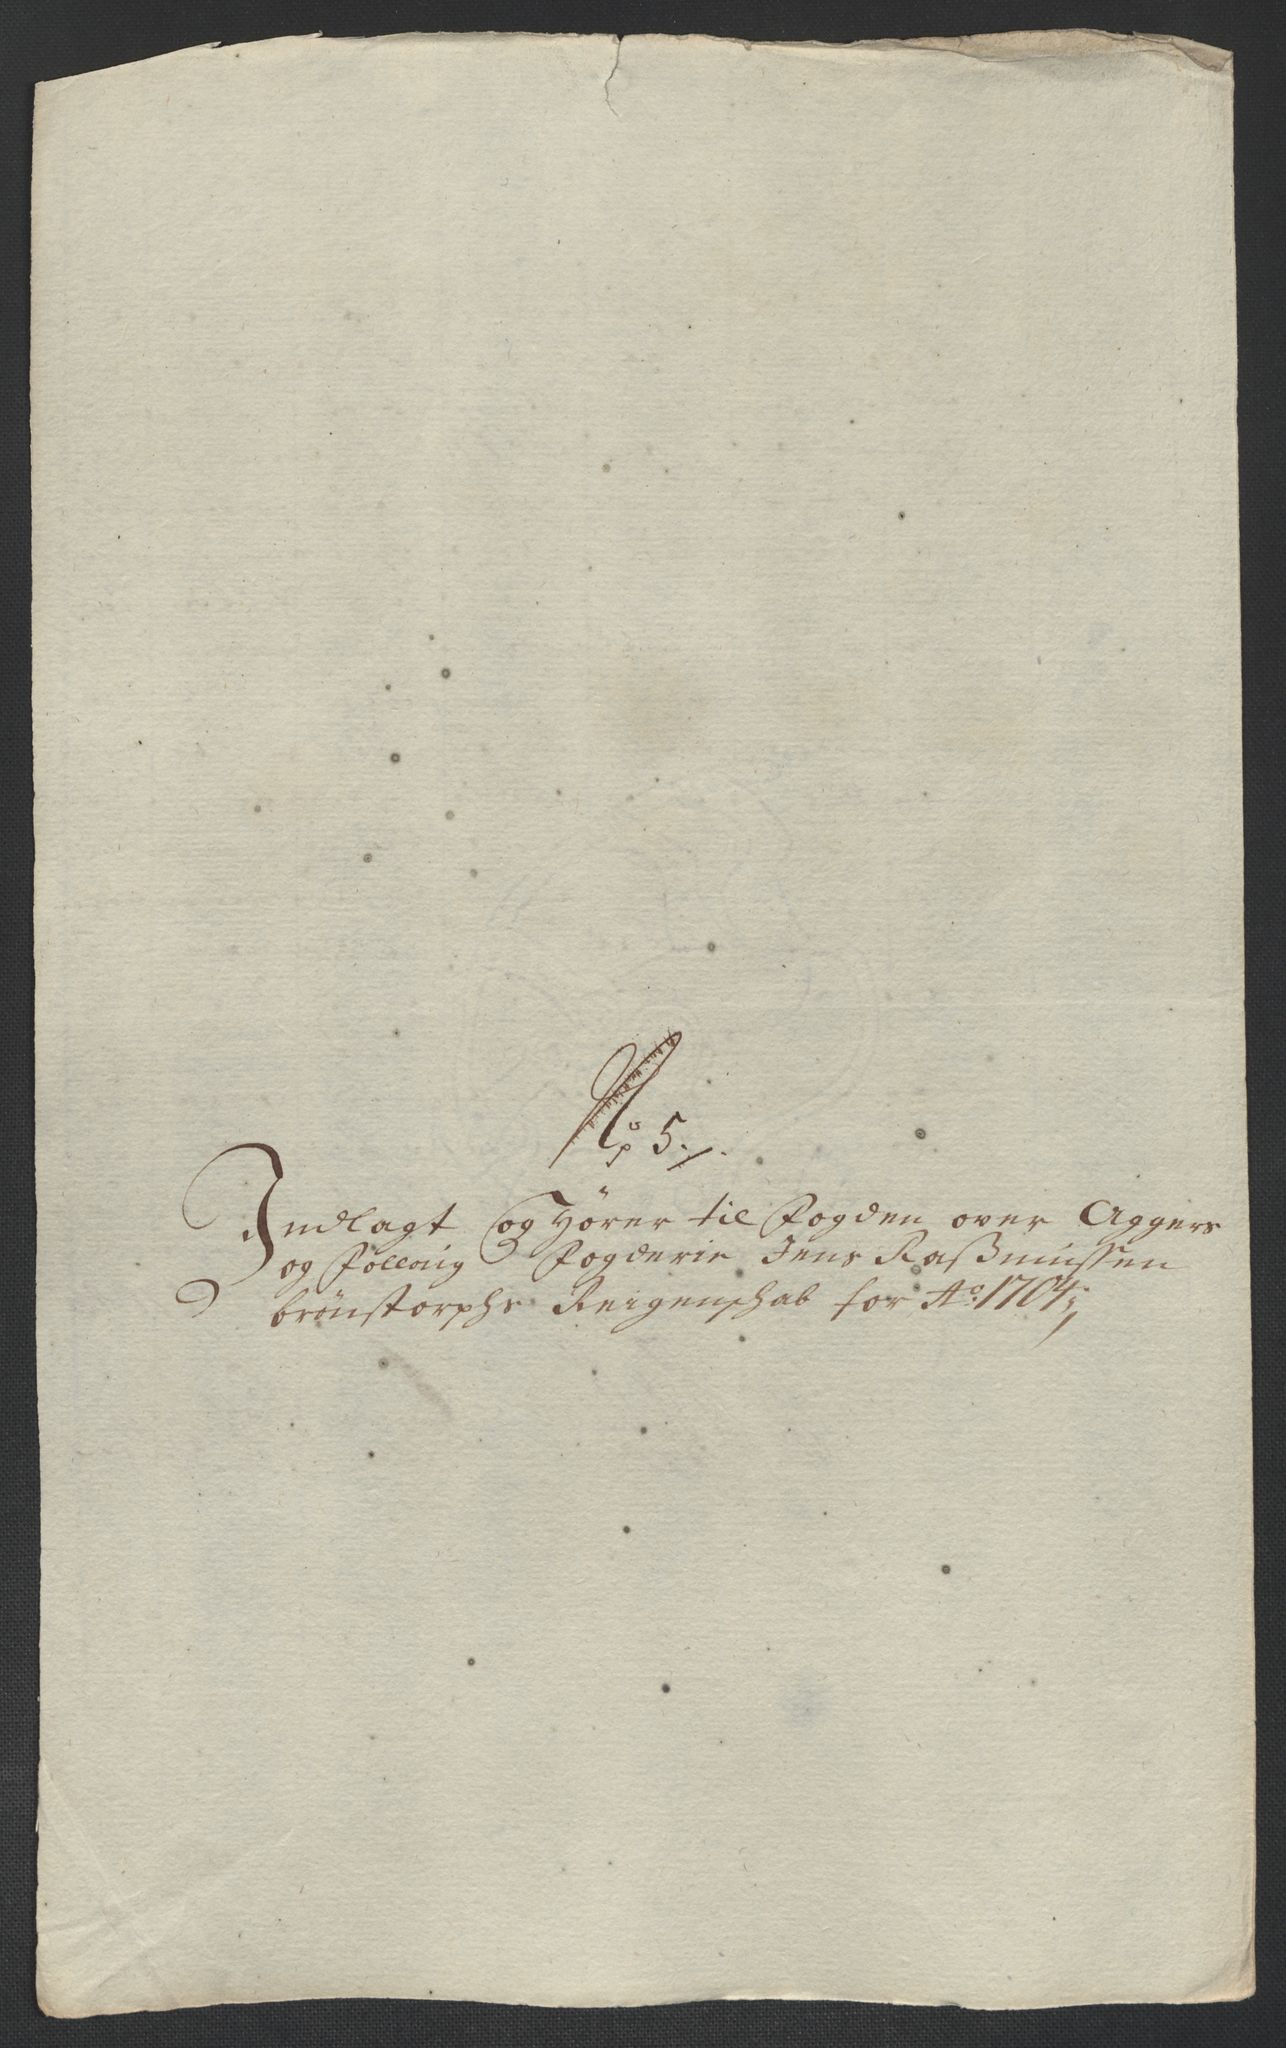 No 5./.
Indlagt og Hörer til Fogden over Aggers
og Follouig Fogderie Jens Raßmussen
brönstorphs Reigenschab for Ao: 1704;